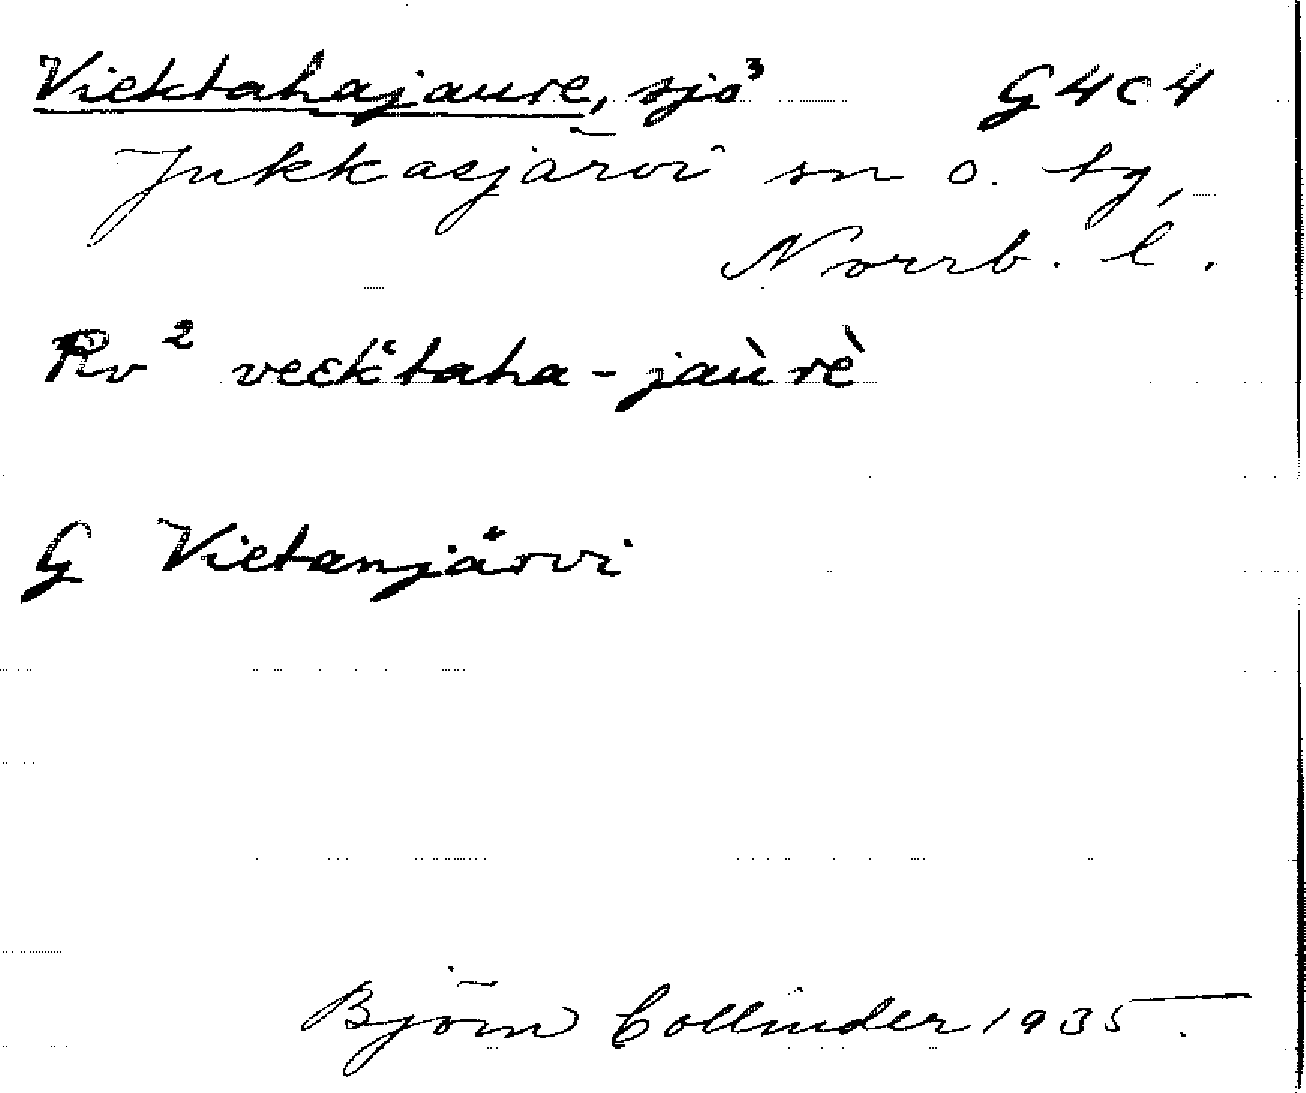 Viektahajaure, sjö G4c4
Jukkasjärvi sn o. tg,
Norrb. l.
Rv² vecktaha-jaùrè
G Vietanjärvi
Björn Collinder 1935.